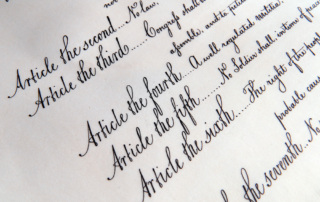 Article the second... No law,
Article the third...... Congress shall
assemble, and to petition
Article the fourth...... A well regulated militia
Article the fifth........ No Soldier shall, in time of peace
Article the sixth...... The right of the people
probable cause
the seventh.. No